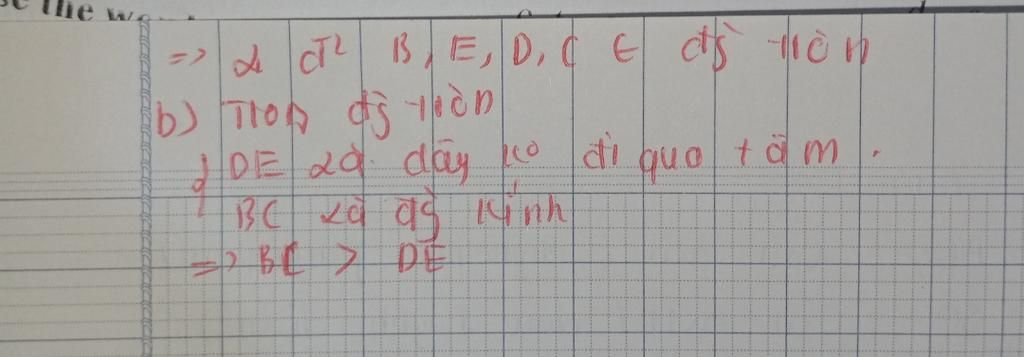 => 4 đ² B, E, D, C ∈ đg tròn
b) Trog đg tròn
DE là dây ko đi qua tâm.
BC là đg kính
=> BC > DE